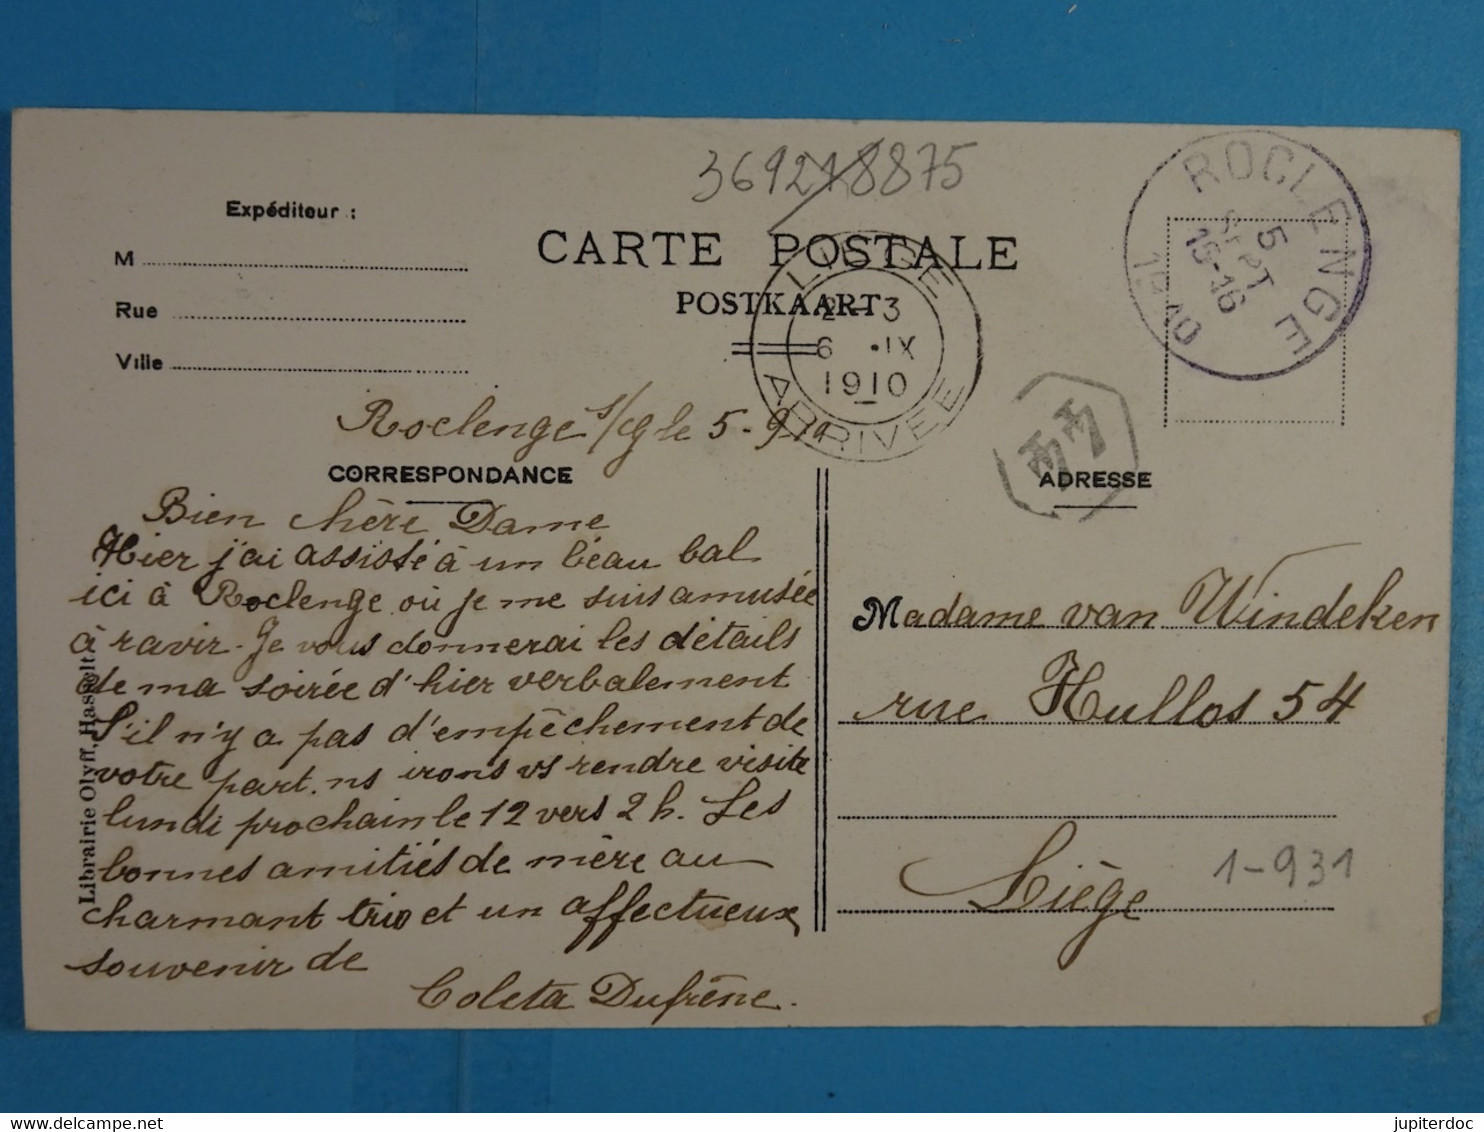 369218875
Expéditeur :
M
Rue
Ville
CARTE POSTALE
POSTKAART
LIEGE
2-3
6 ·IX
1910
ARRIVÉE
ROCLENGE
5
SEPT
15-16
1910
Roclenge s/g le 5-9-10
CORRESPONDANCE
ADRESSE
Bien chère Dame
Hier j'ai assisté à un beau bal
ici à Roclenge où je me suis amusée
à ravir. Je vous donnerai les détails
de ma soirée d'hier verbalement
S'il n'y a pas d'empêchement de
votre part. ns irons vs rendre visite
lundi prochain le 12 vers 2 h. Les
bonnes amitiés de mère au
charmant trio et un affectueux
souvenir de
Coleta Dufrêne.
Madame van Windeken
rue Hullos 54
Liège
1-931
Librairie Olyff, Hasselt
jupiterdoc